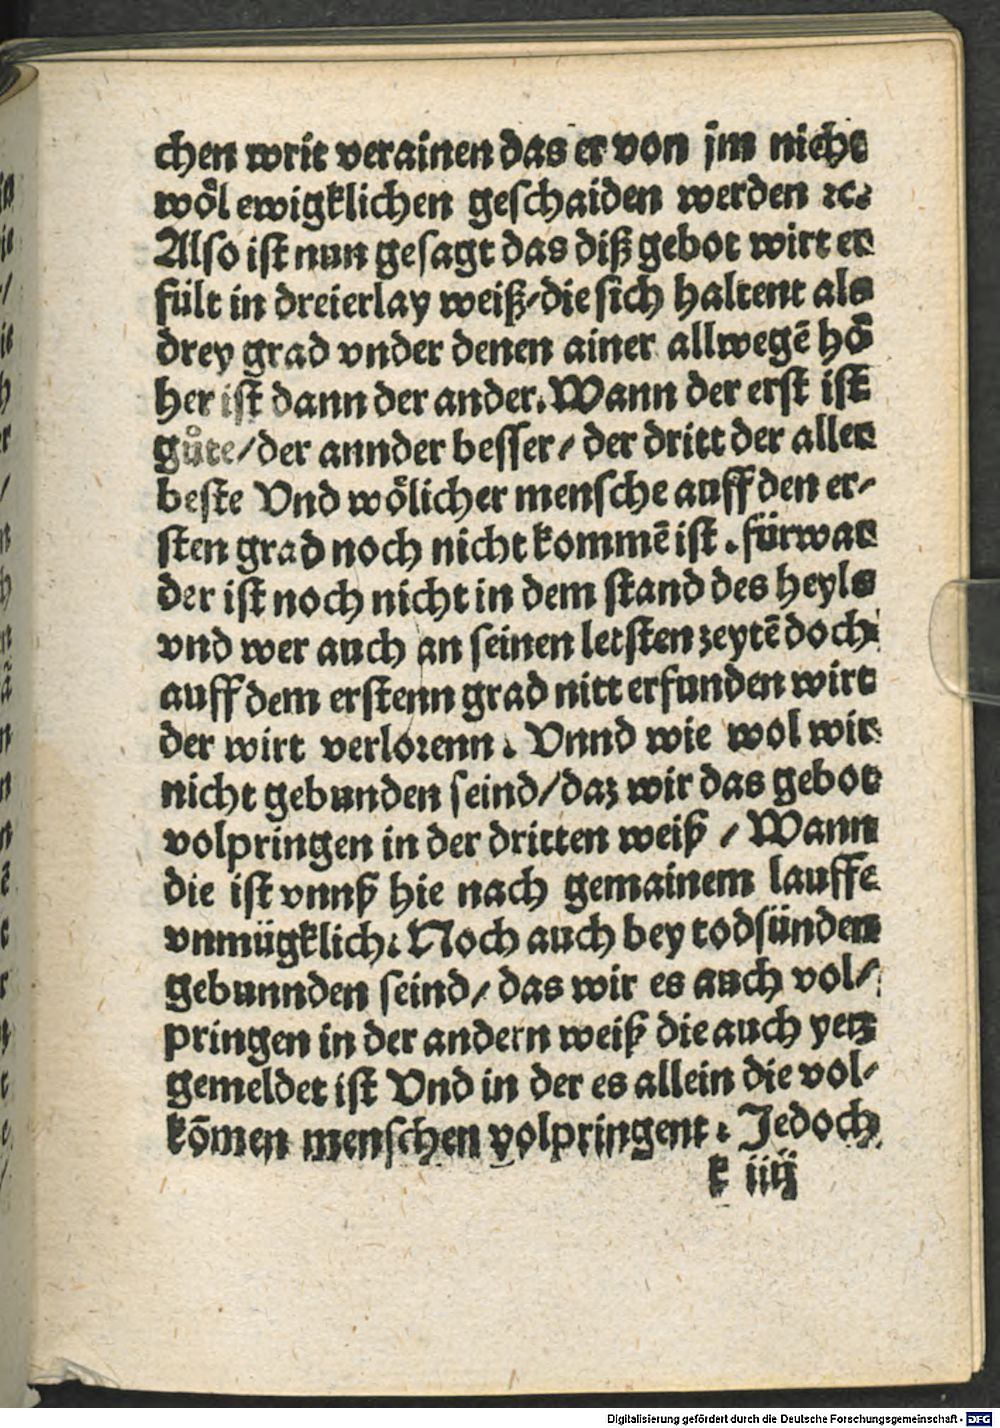 chen writ verainen das er von jm nicht
wöl ewigklichen geschaiden werden ⁊c.
Also ist nun gesagt das diß gebot wirt er
fült in dreierlay weiß/die sich haltent als
drey grad vnder denen ainer allwegē hö
her ist dann der ander. Wann der erst ist
gůte/der annder besser/ der dritt der aller
beste Vnd wölicher mensche auff den er/
sten grad noch nicht kommē ist. fürwar
der ist noch nicht in dem stand des heyls
vnd wer auch an seinen letsten zeytē doch
auff dem erstenn grad nitt erfunden wirt
der wirt verlorenn. Vnnd wie wol wir
nicht gebunden seind/daz wir das gebot
volpringen in der dritten weiß / Wann
die ist vnnß hie nach gemainem lauffe
vnmügklich. Noch auch bey todsünden
gebunnden seind/ das wir es auch vol/
pringen in der andern weiß die auch yetz
gemeldet ist Vnd in der es allein die vol/
kōmen menschen volpringent. Jedoch
k iiij
Digitalisierung gefördert durch die Deutsche Forschungsgemeinschaft - DFG